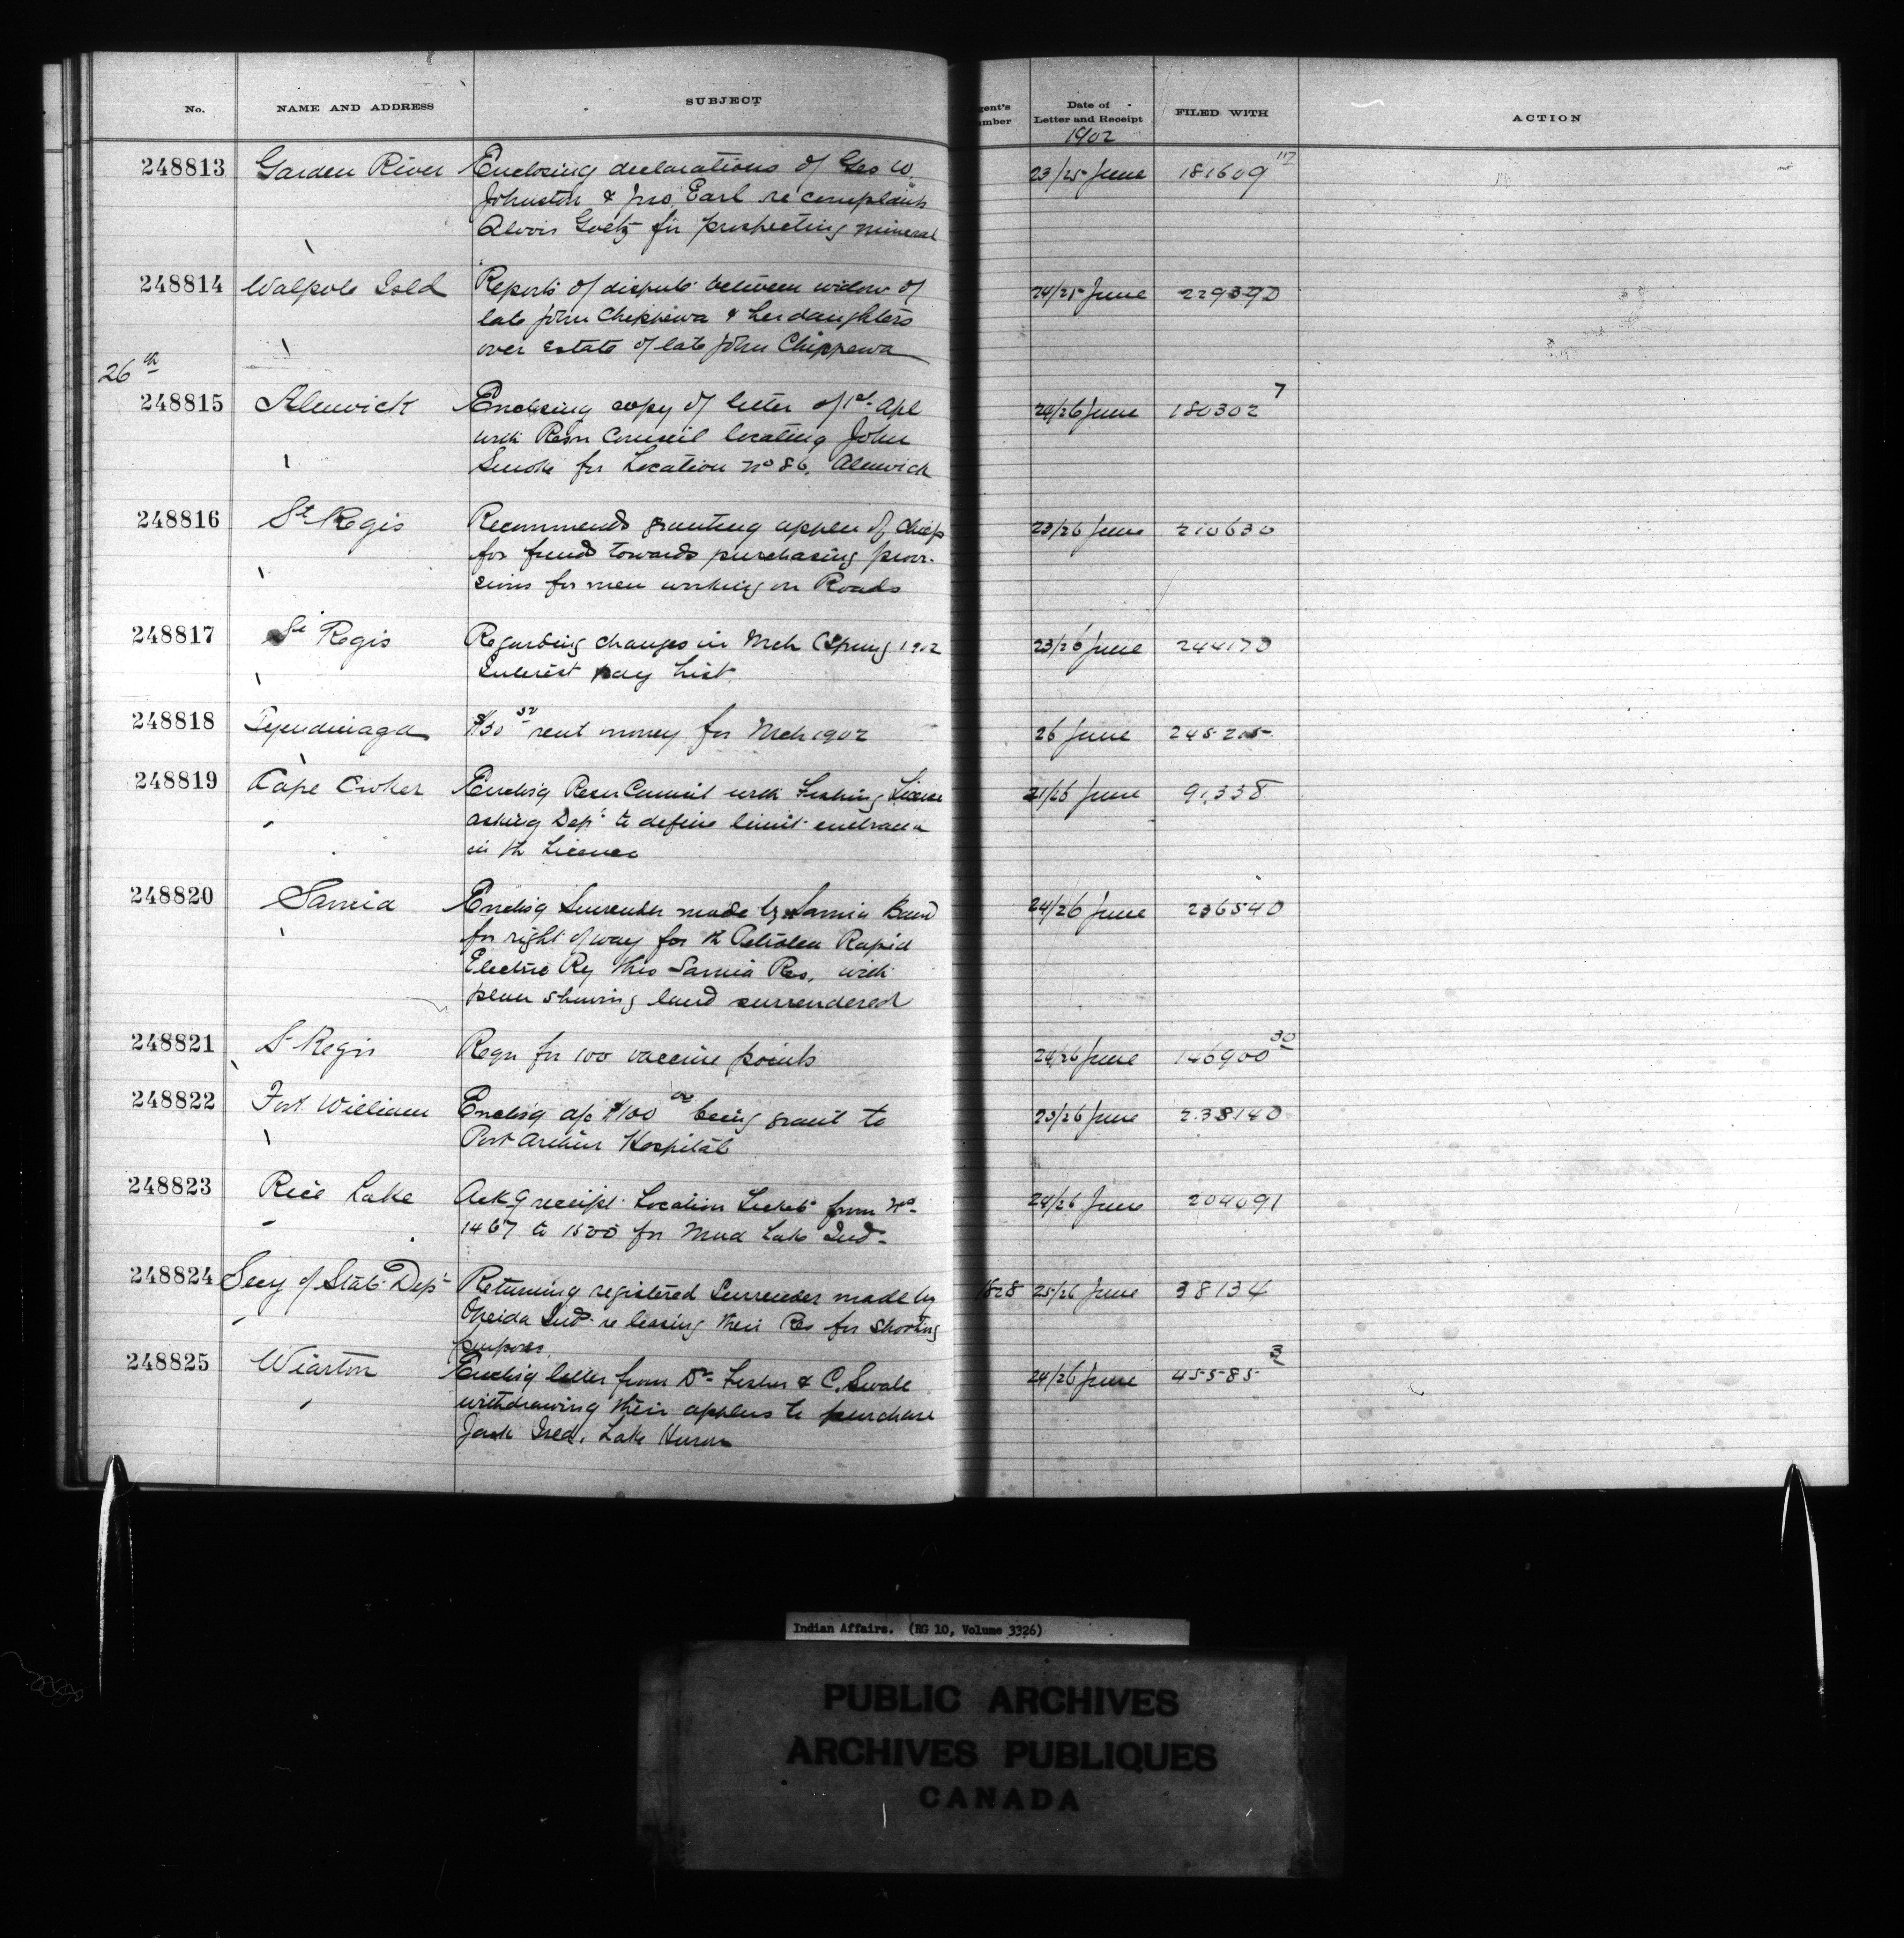 No. NAME AND ADDRESS SUBJECT Agent's Number Date of Letter and Receipt FILED WITH ACTION
1902
248813 Garden River Enclosing declarations of Geo W. 23/25 June 181609 117
Johnston & Jno. Earl re complaint
Alovis Goetz for prospecting mineral
248814 Walpole Isld Reports of dispute between widow of 24/25 June 229390
late John Chippewa & her daughters
over estate of late John Chippewa
26th
248815 Alnwick Enclosing copy of letter of 1st Apl 24/26 June 180302 7
with Resn Council locating John
Smoke for Location No 86, Alnwick
248816 St Regis Recommends granting applcn of Chiefs 23/26 June 210630
for funds towards purchasing provi-
sions for men working on Roads
248817 St Regis Regarding changes in Mch (Spring 1902 23/26 June 244170
Interest pay List.
248818 Tyendinaga rent money for Mch 1902 26 June 245215
248819 Cape Croker Enclsg Resn Council with Fishing License 21/26 June 91,338
asking Dept to define limit embraced
in th License
248820 Sarnia Enclsg Surrender made by Sarnia Band 24/26 June 236540
for right of way for th Petrolea Rapid
Electric Ry thro Sarnia Res, with
plan showing land surrendered
248821 St Regis Reqn for 100 vaccine points 24/26 June 146900 30
248822 Fort William Enclsg a/c $100 00 being grant to 23/26 June 238140
Port Arthur Hospital
248823 Rice Lake Ackg receipt Location Tickets from No 24/26 June 204091
1467 to 1500 for Mud Lake Ind-
248824 Secy of State Dept Returning registered Surrender made by 1828 25/26 June 38134
Oneida Inds re leasing their Res for shooting
purposes.
248825 Wiarton Enclsg letter from Dr Fisher & C. Swale 24/26 June 45585 3
withdrawing their applcns to purchase
Jack Isld, Lake Huron
Indian Affairs. (RG 10, Volume 3326)
PUBLIC ARCHIVES
ARCHIVES PUBLIQUES
CANADA